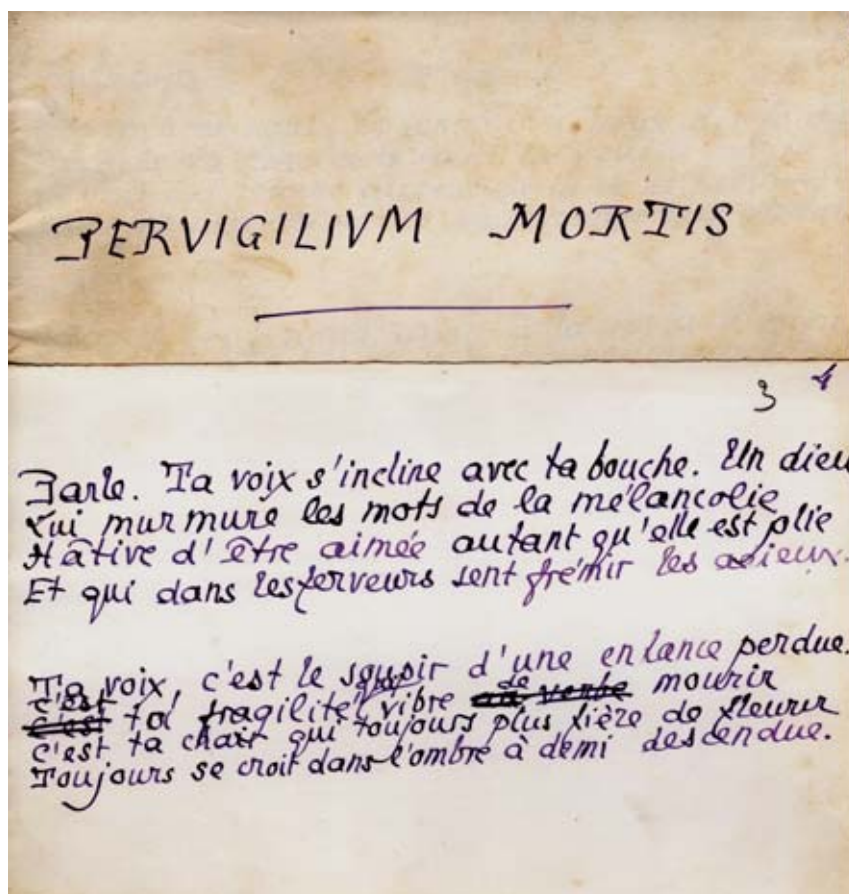 PERVIGILIVM MORTIS
3 4
Parle. Ta voix s'incline avec ta bouche. Un dieu
Lui murmure les mots de la mélancolie
Hâtive d'être aimée autant qu'elle est plie
Et qui dans les ferveurs sent frémir les adieux.
Ta voix, c'est le soupir d'une enfance perdue.
c'est
c'est ta fragilité qui vibre de mourir
c'est ta chair qui toujours plus fière de fleurir
Toujours se croit dans l'ombre à demi descendue.